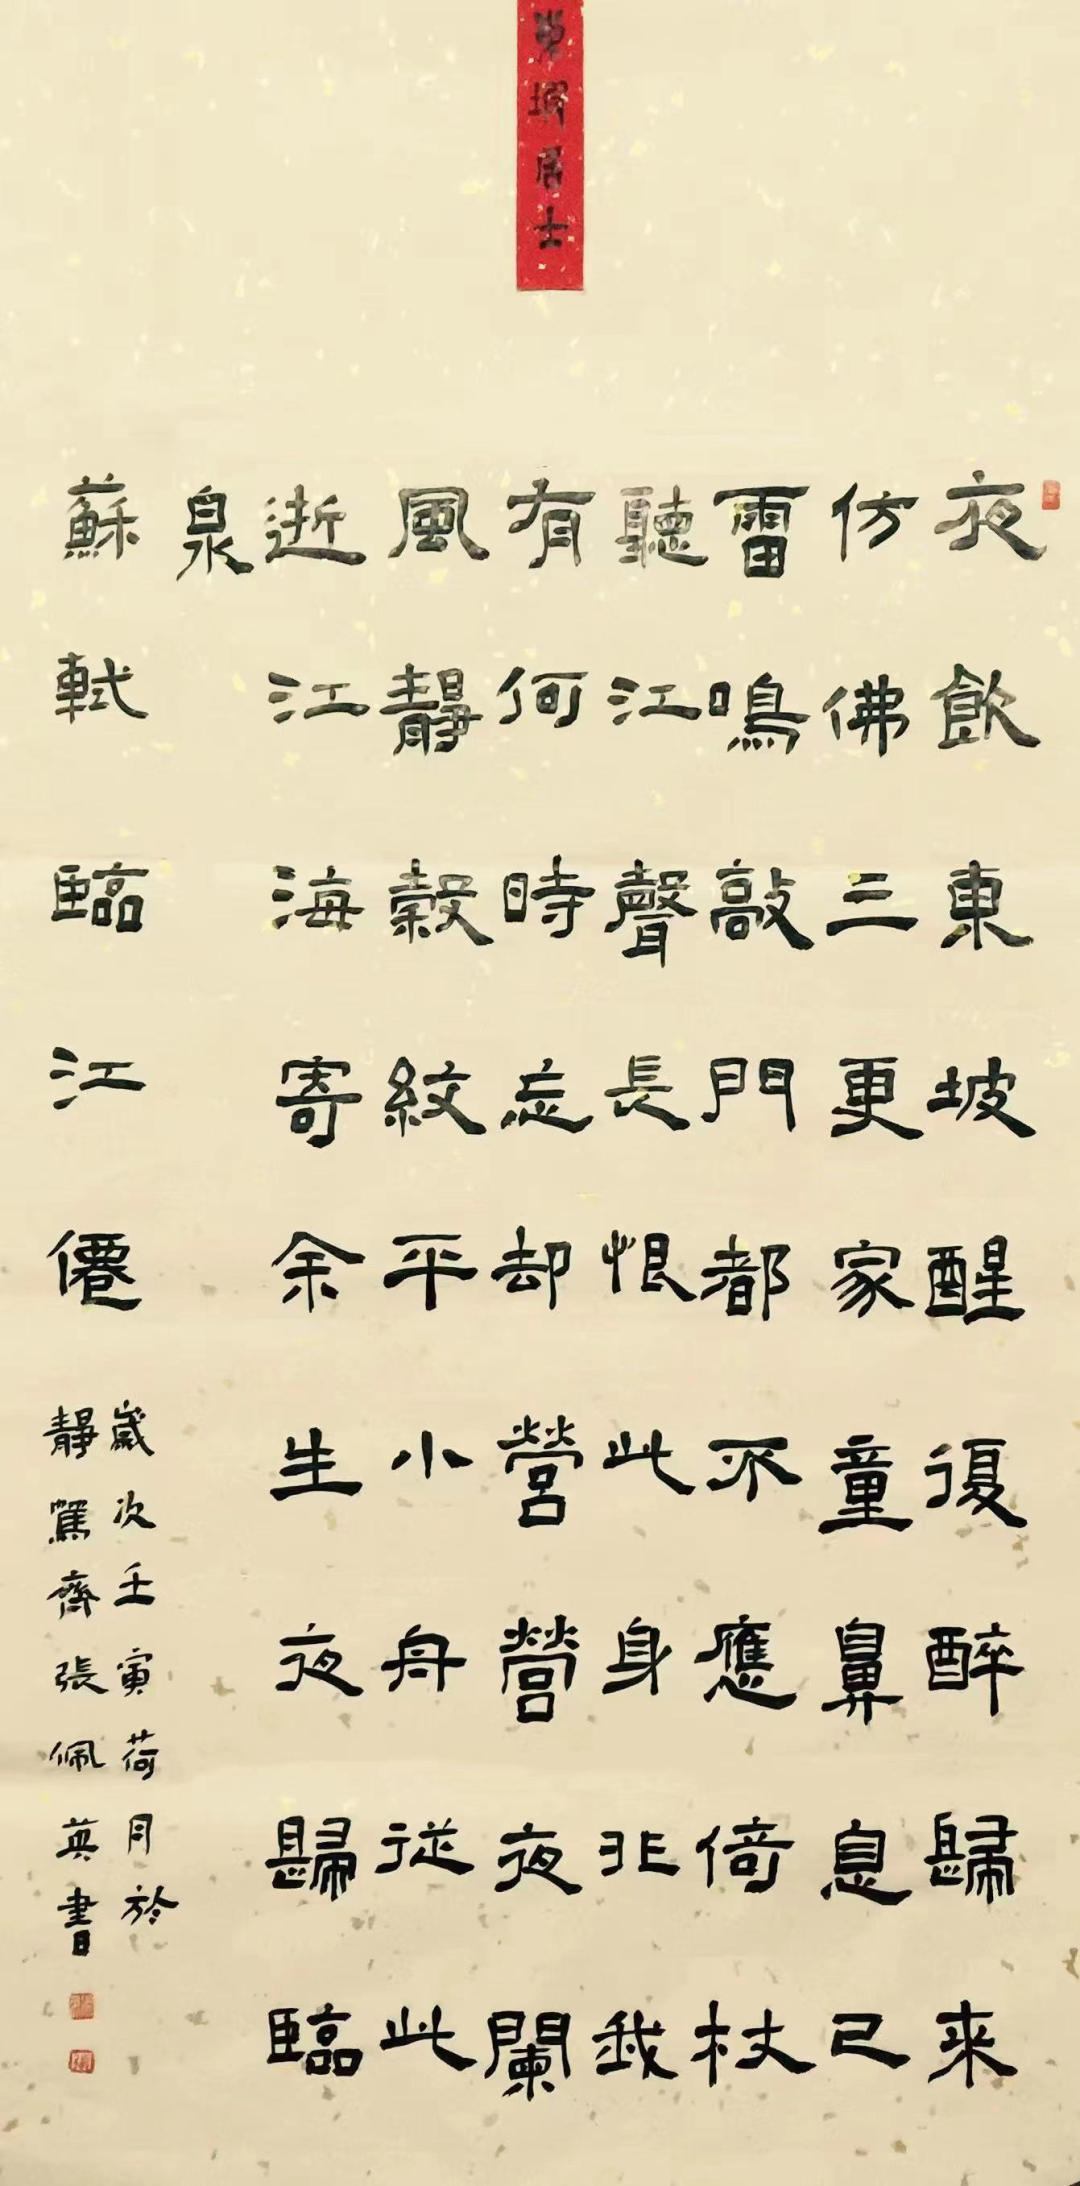 東坡居士
夜飲東坡醒復醉歸来
仿佛三更家童鼻息已
雷鳴敲門都不應倚杖
聽江聲長恨此身非我
有何時忘却營營夜闌
風靜縠紋平小舟從此
逝江海寄余生夜歸臨
泉
蘇軾臨江僊
歲次壬寅荷月於
靜篤齋張佩英書